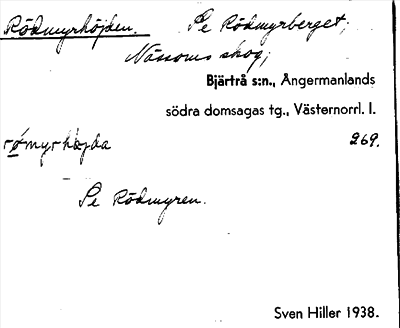 Rödmyrhöjden. Se Rödmyrberget,
Nässoms skog,
Bjärtrå s:n., Ångermanlands
södra domsagas tg., Västernorrl. l.
269.
Se Rödmyren.
Sven Hiller 1938.